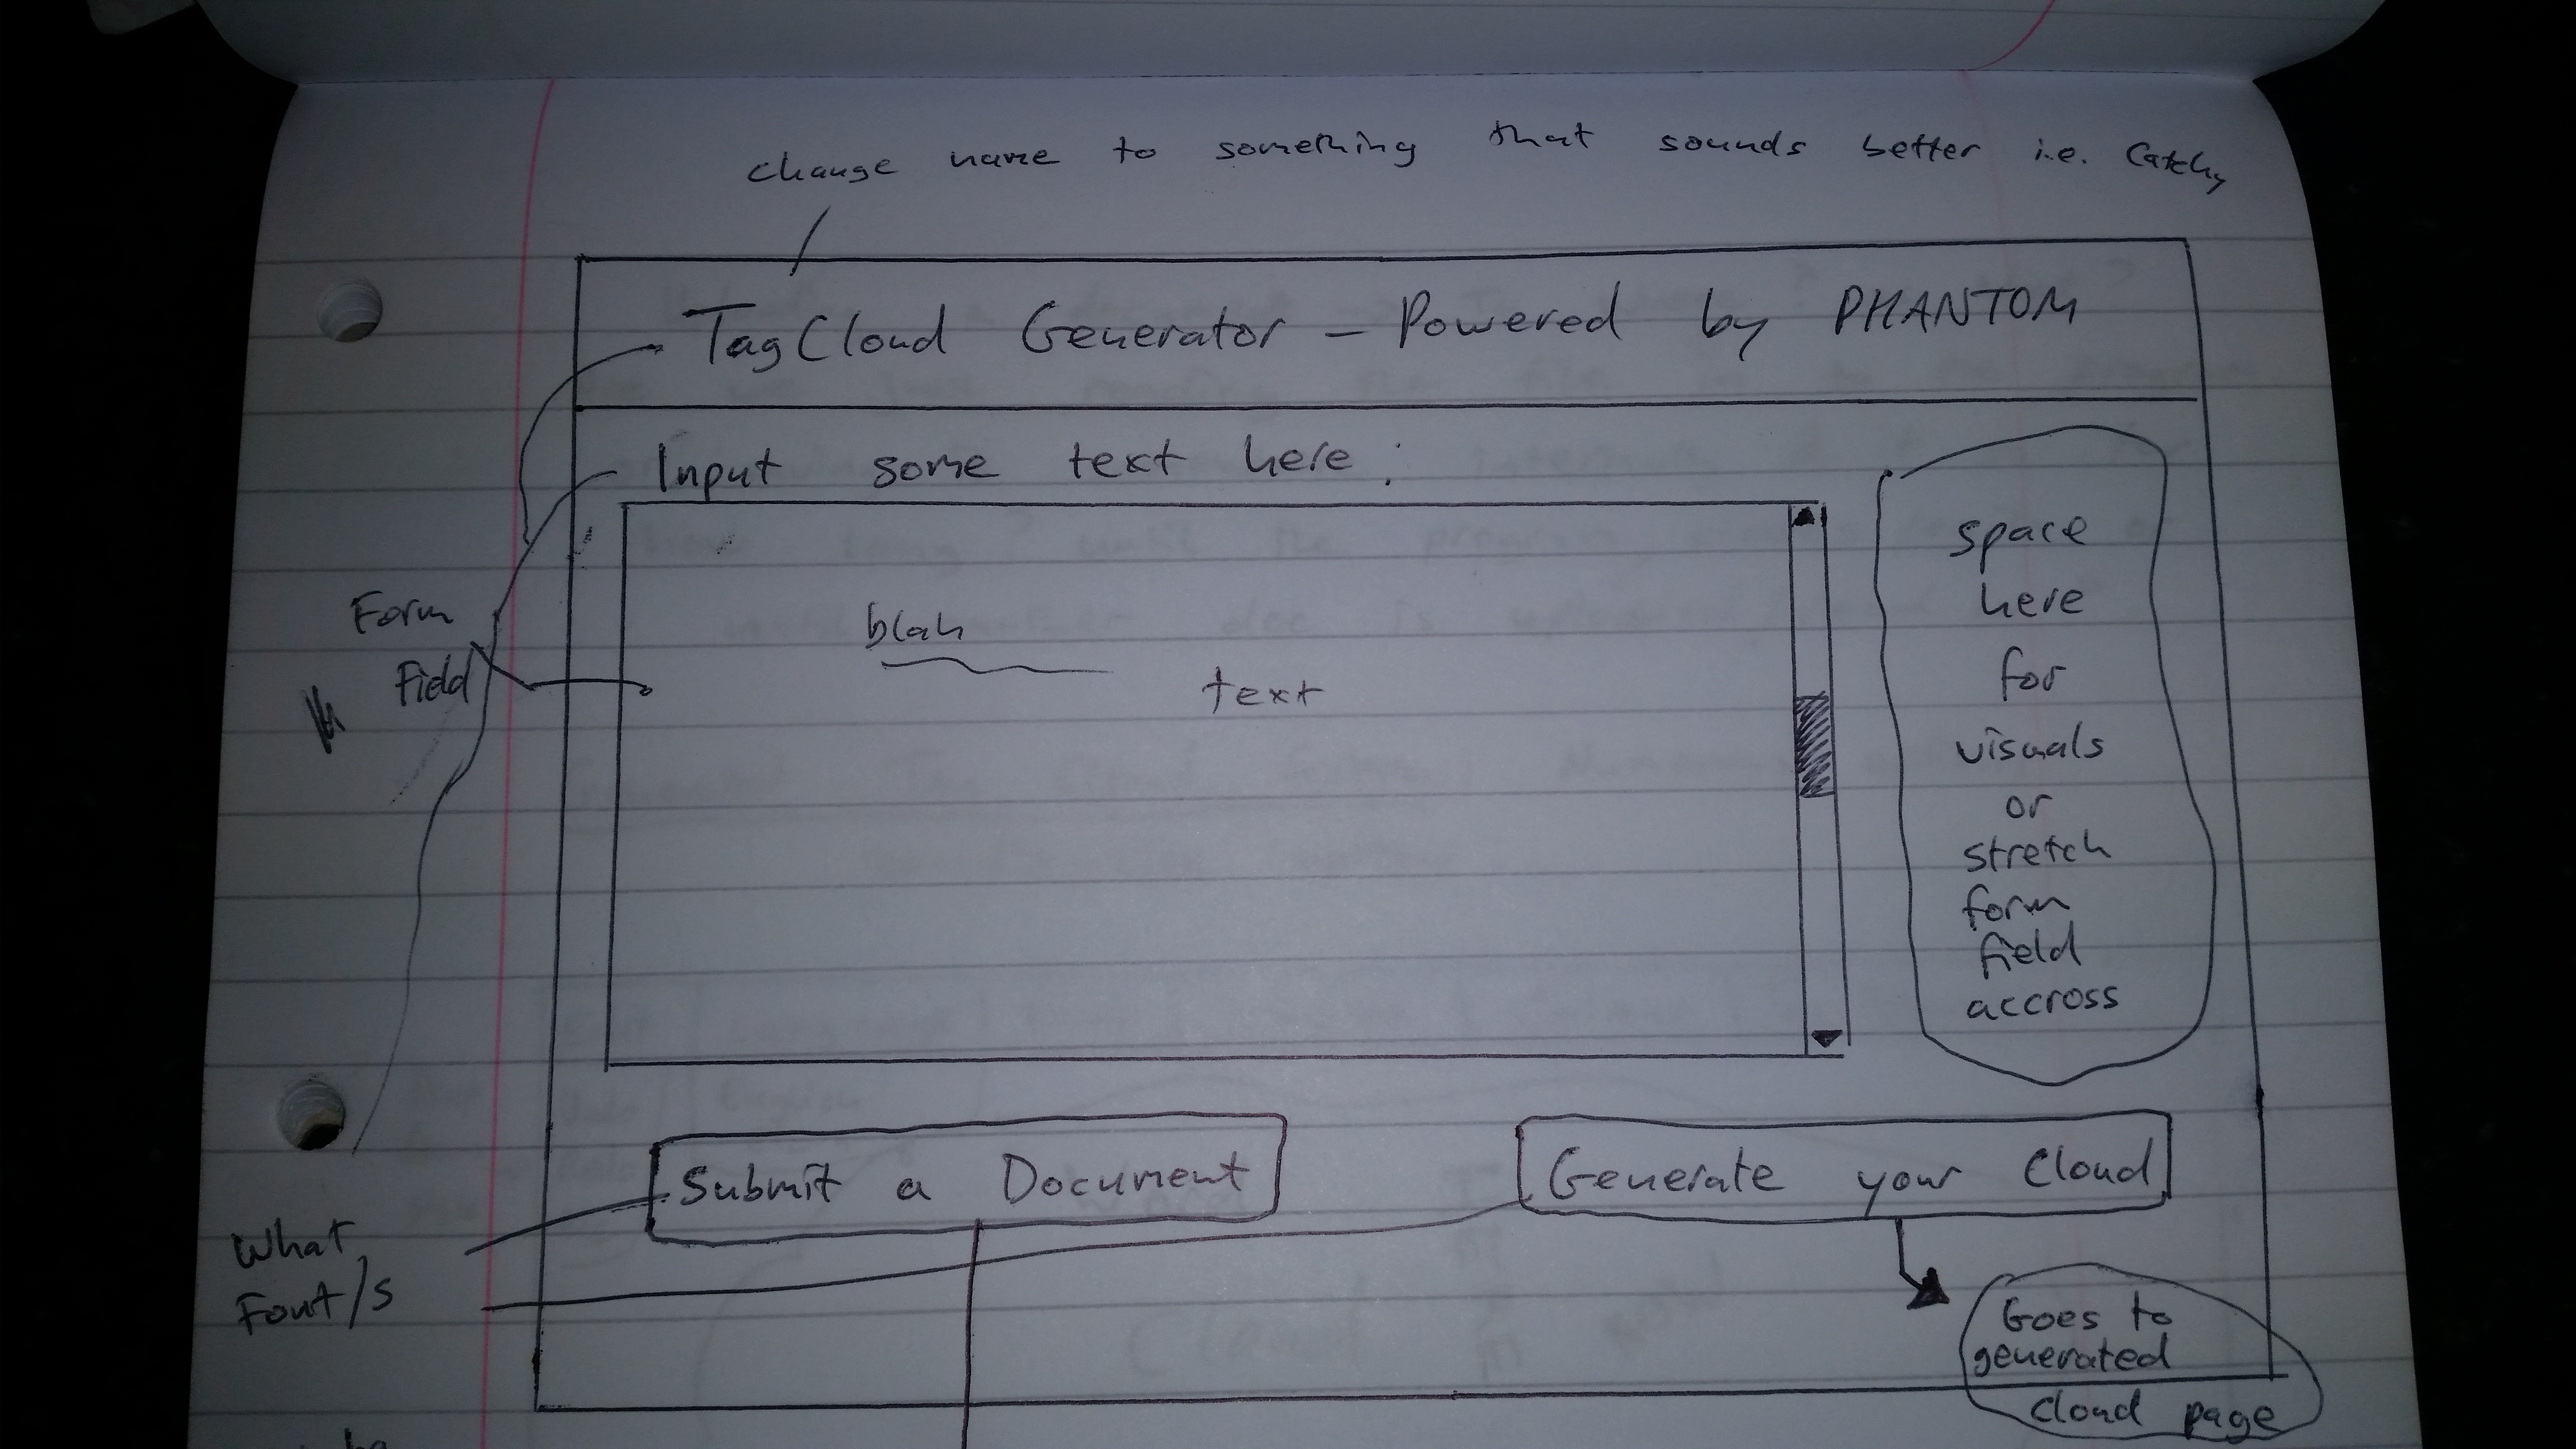 change name to something that sounds better i.e. Catchy
TagCloud Generator - Powered by PHANTOM
Input some text here :
Form
Field
blah
text
space
here
for
visuals
or
stretch
form
field
accross
Submit a Document
Generate your Cloud
What
Font/s
Goes to
generated
cloud page